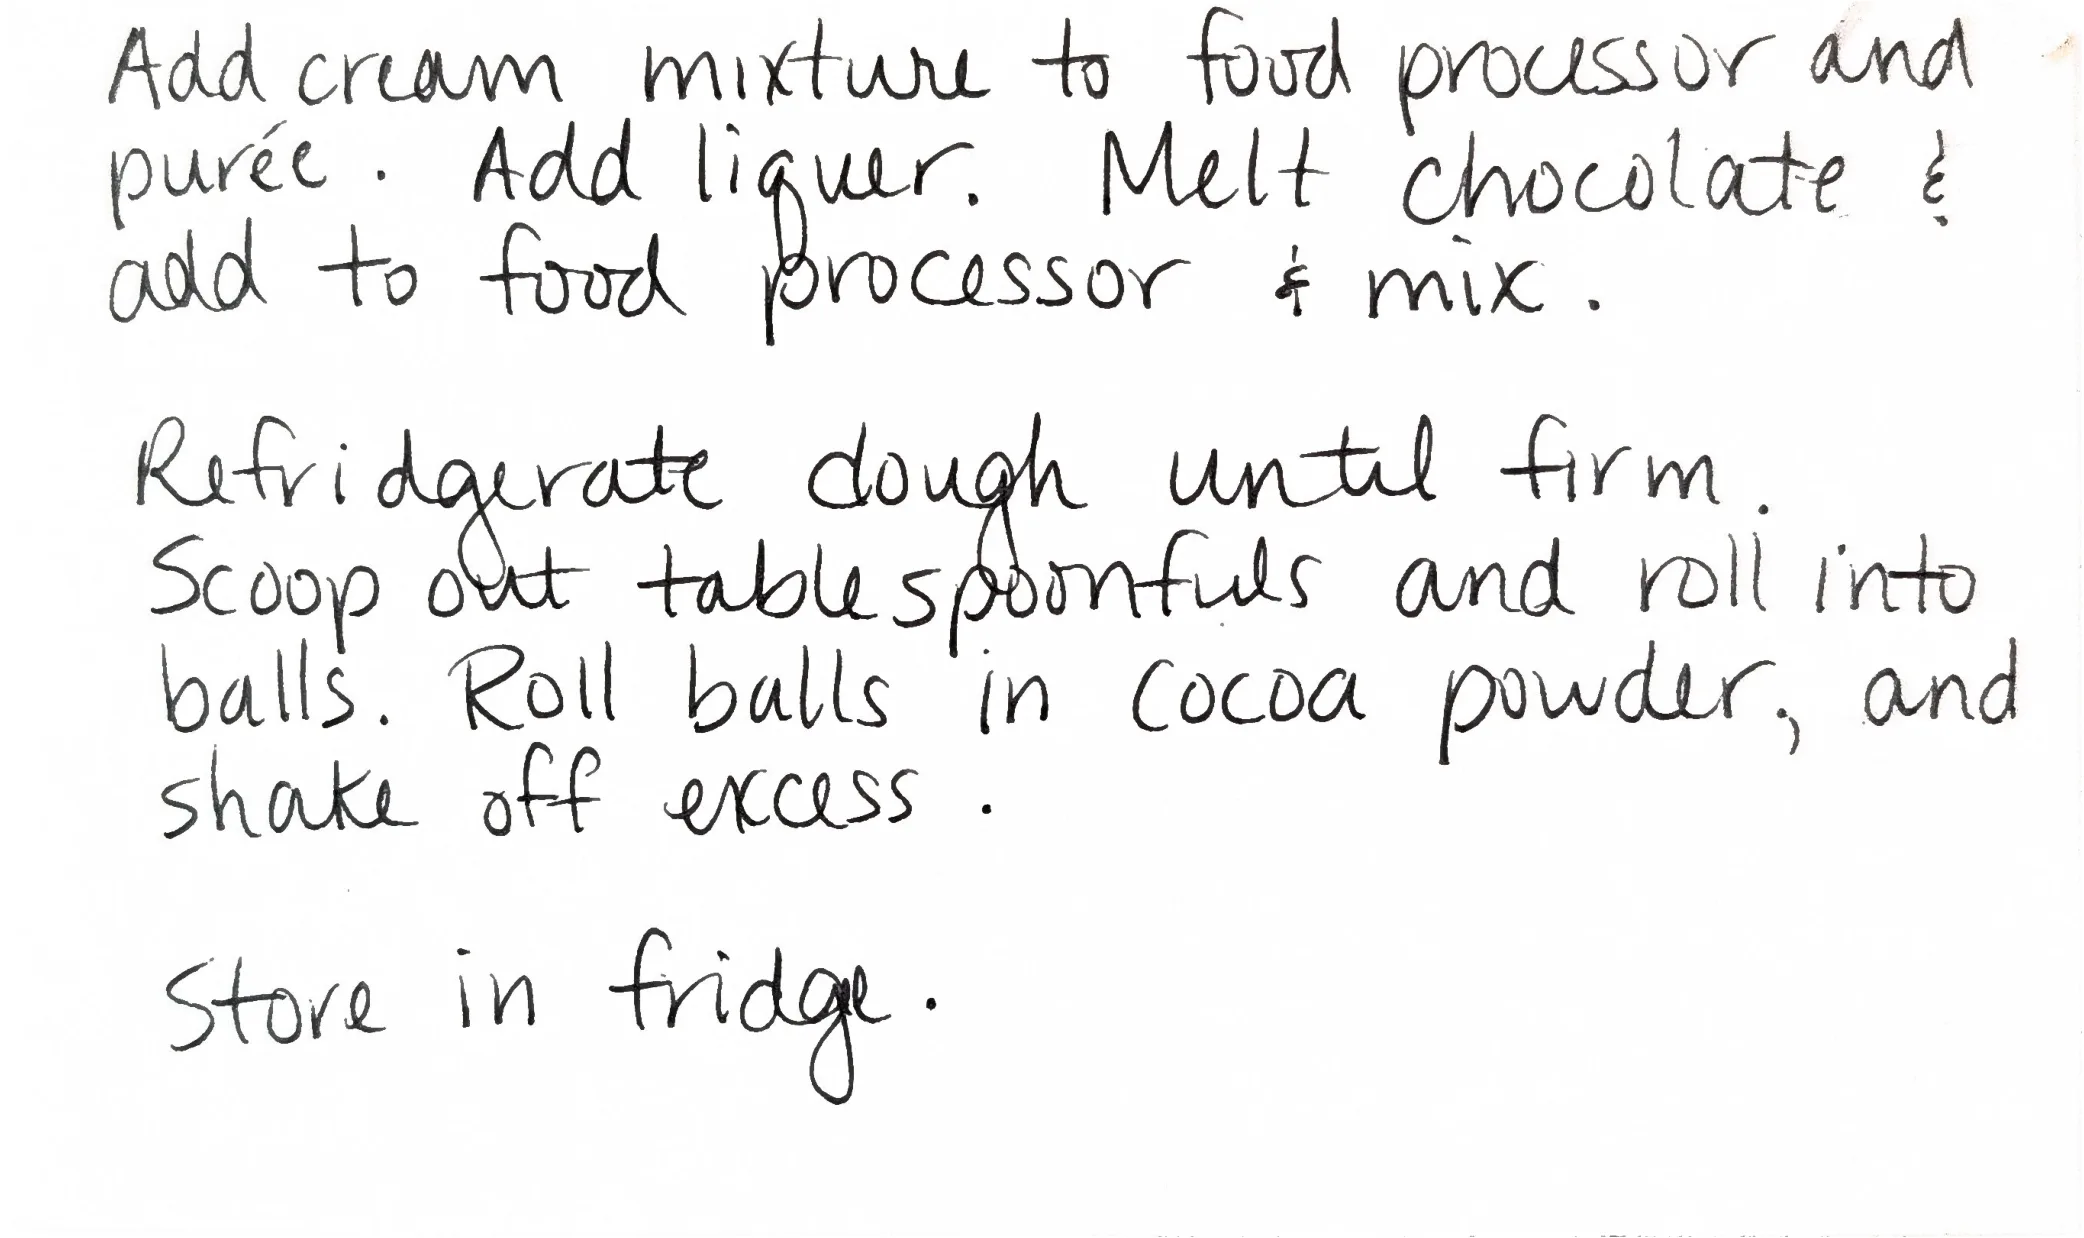 Add cream mixture to food processor and
purée. Add liquer. Melt chocolate &
add to food processor & mix.
Refridgerate dough until firm.
Scoop out tablespoonfuls and roll into
balls. Roll balls in cocoa powder, and
shake off excess.
Store in fridge.